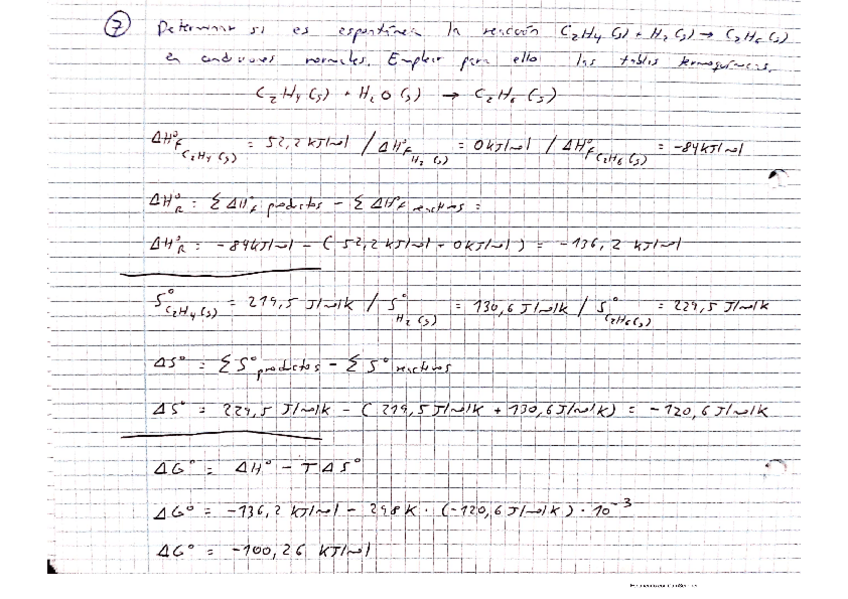 7 Determinar si es espontánea la reacción C₂H₄ (g) + H₂ (g) → C₂H₆ (g)
en condiciones normales. Emplear para ello las tablas termoquímicas.
C₂H₄ (g) + H₂O (g) → C₂H₆ (g)
ΔH°f C₂H₄ (g) = 52,2 kJ/mol / ΔH°f H₂ (g) = 0 kJ/mol / ΔH°f C₂H₆ (g) = -84 kJ/mol
ΔH°R = Σ ΔH°f productos - Σ ΔH°f reactivos =
ΔH°R = -84 kJ/mol - (52,2 kJ/mol + 0 kJ/mol) = -136,2 kJ/mol
S° C₂H₄ (g) = 219,5 J/molK / S° H₂ (g) = 130,6 J/molK / S° C₂H₆ (g) = 229,5 J/molK
ΔS° = Σ S° productos - Σ S° reactivos
ΔS° = 229,5 J/molK - (219,5 J/molK + 130,6 J/molK) = -120,6 J/molK
ΔG° = ΔH° - TΔS°
ΔG° = -136,2 kJ/mol - 298K · (-120,6 J/molK) · 10⁻³
ΔG° = -100,26 kJ/mol